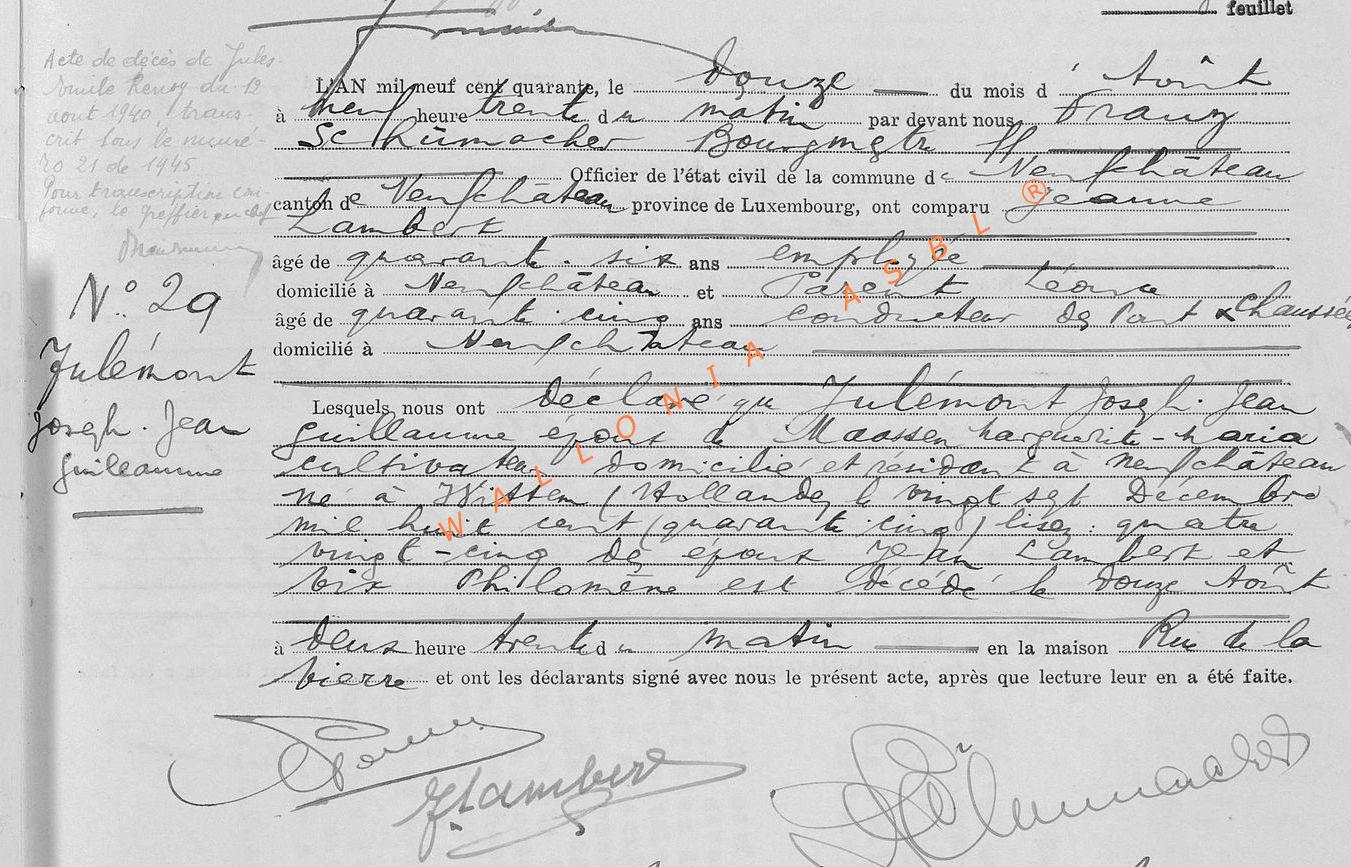 feuillet
Acte de décès de Jules-
Emile Henoz du 12
août 1940, trans-
crit sous le numé-
ro 21 de 1945.
Pour transcription con-
forme, le greffier en chef
N° 29
Julémont
Joseph. Jean
Guillaume
L'AN mil neuf cent quarante, le douze du mois d'Août
à neuf heure trente du matin par devant nous, Franz
Schümacher Bourgmestre ff
Officier de l'état civil de la commune de Neufchâteau
canton de Neufchâteau province de Luxembourg, ont comparu Jeanne
Lambert
âgé de quarante-six ans employée
domicilié à Neufchâteau et Parent Léonce
âgé de quarante cinq ans conducteur des Pont & Chaussées
domicilié à Neufchâteau
Lesquels nous ont déclaré que Julémont Joseph. Jean
Guillaume époux de Maassen Marguerite-Maria
cultivateur domicilié et résidant à Neufchâteau
né à Wittem (Hollande) le vingt sept Décembre
mil huit cent (quarante cinq) lisez: quatre
vingt-cinq des époux Jean Lambert et
Philomène est décédé le douze Août
à deux heure trente du matin en la maison Rue de la
bierre et ont les déclarants signé avec nous le présent acte, après que lecture leur en a été faite.
JLambert
Schumacher
WALLONIA ASBL ®